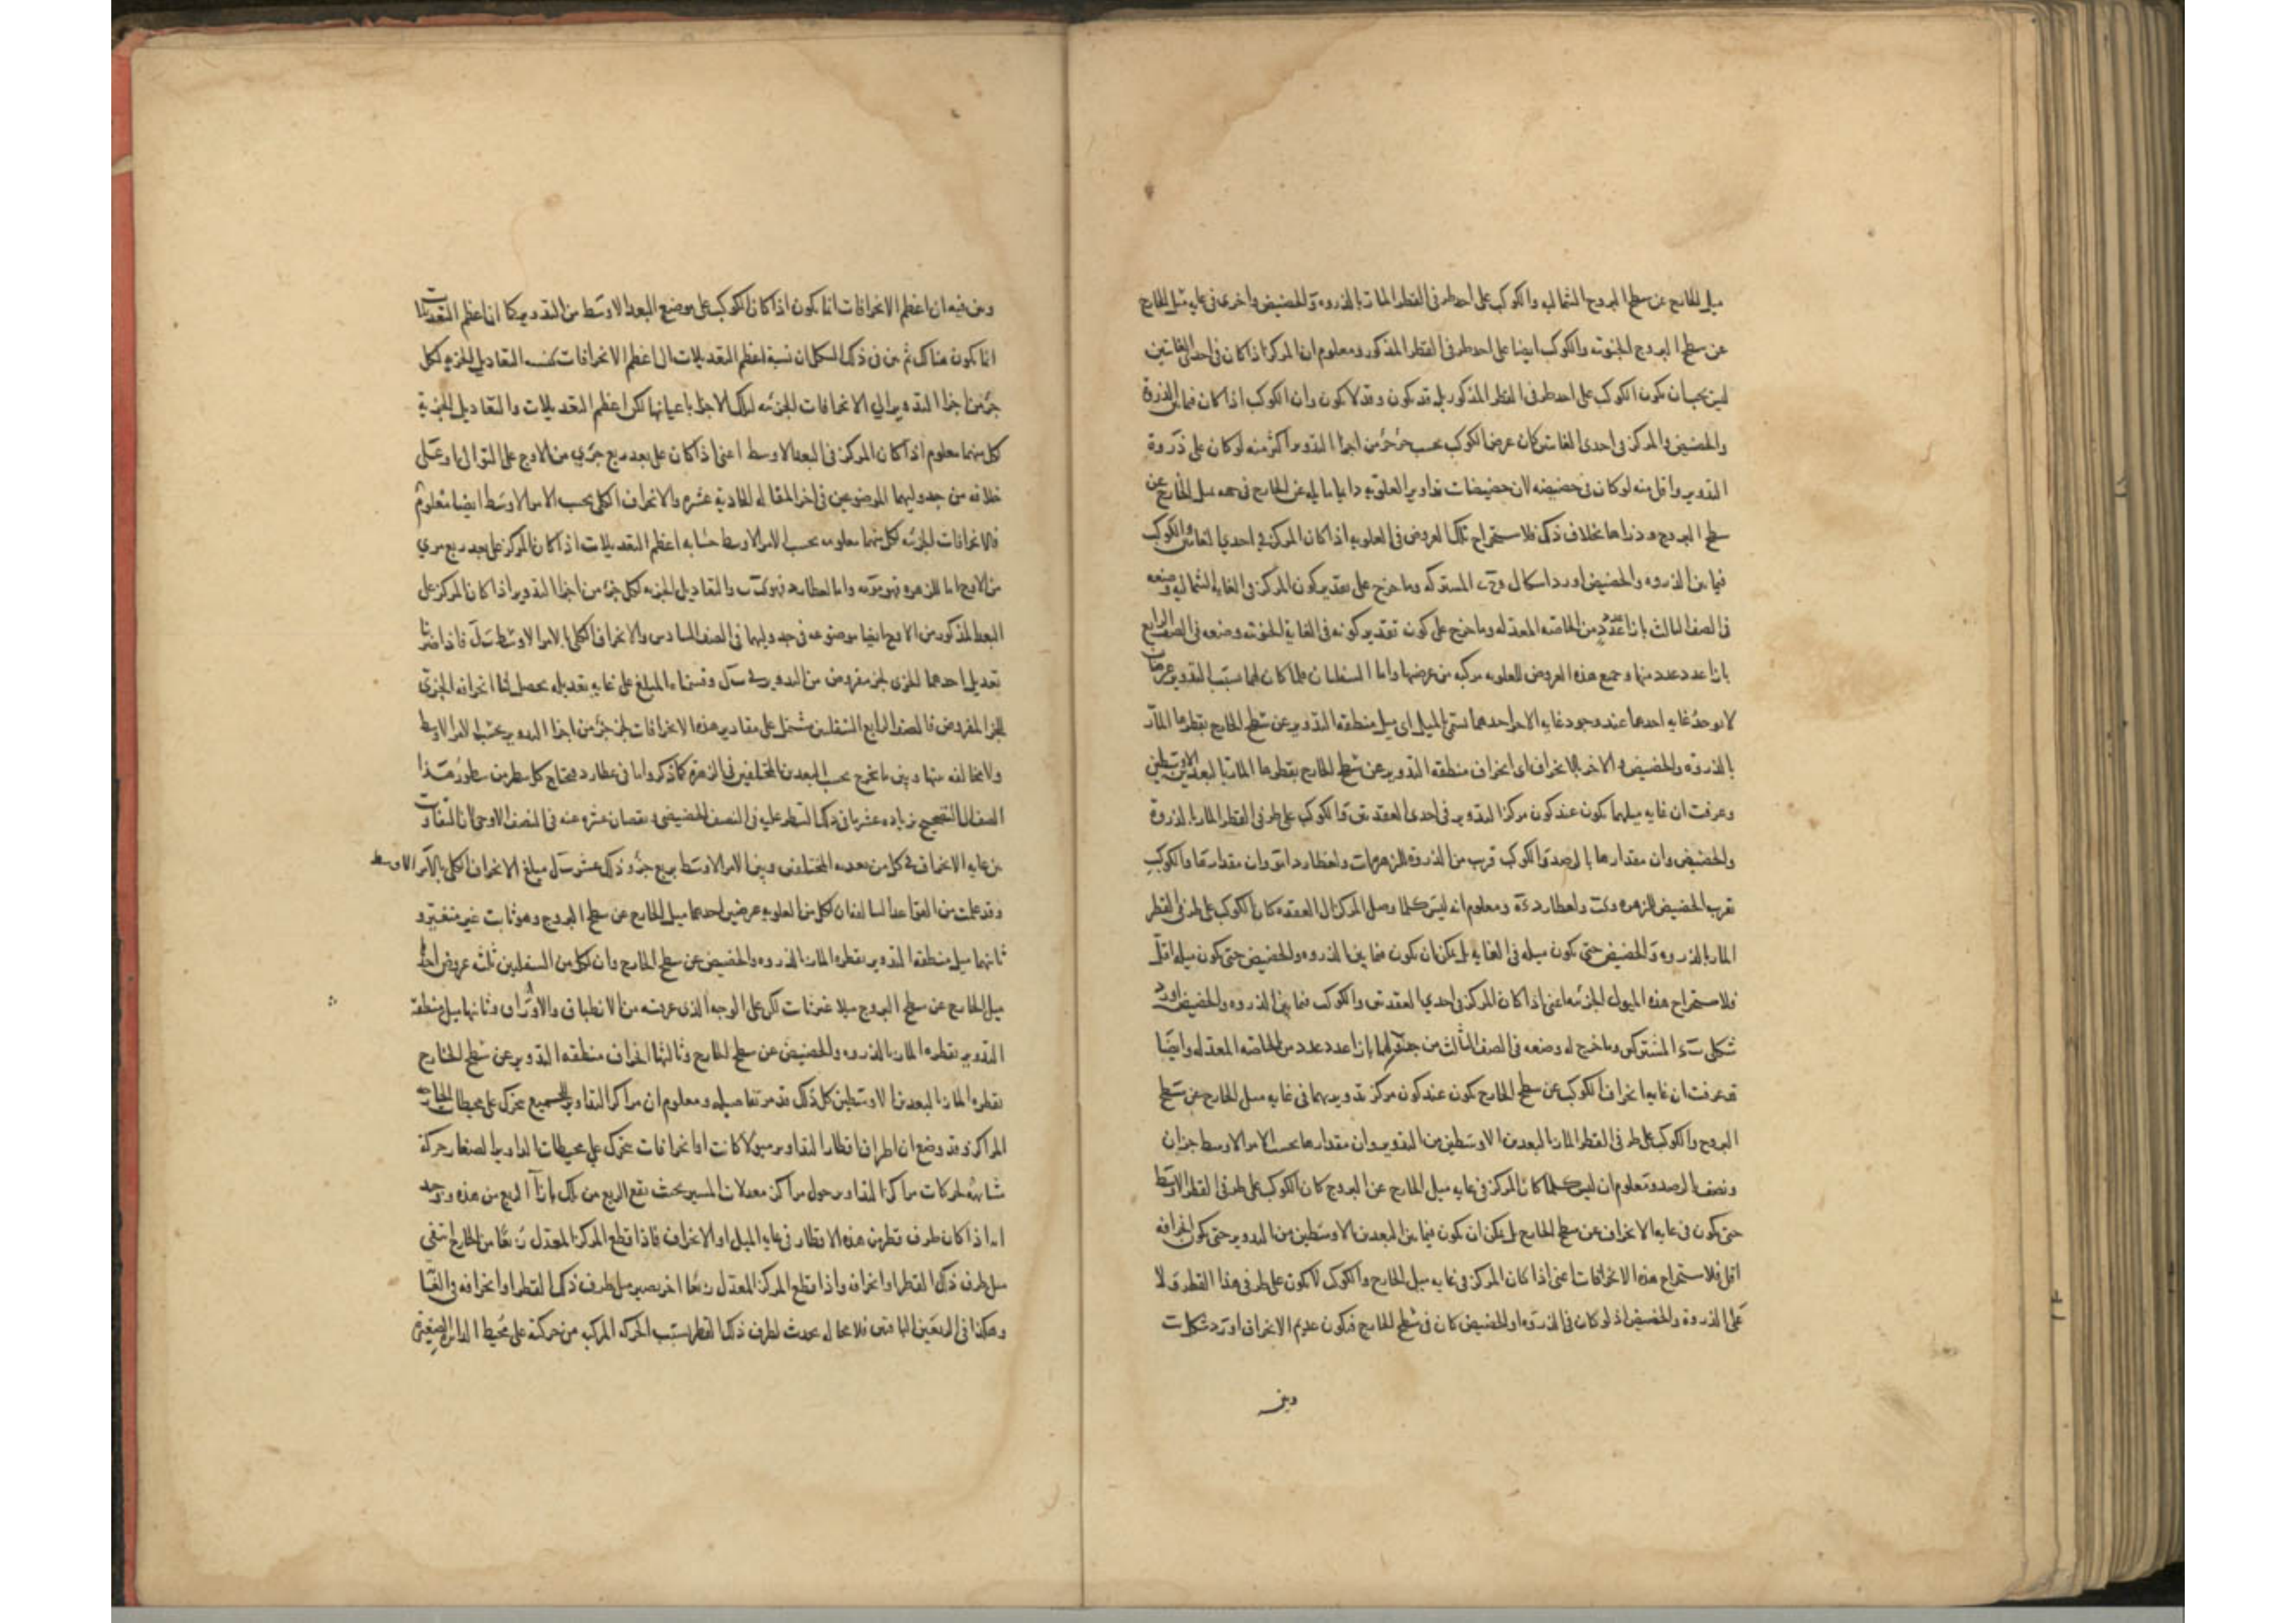 ميل الخارج عن سطح البروج الشماليه والكوكب على احد طرفى القطر المار بالذروه والحضيض واخرى فى غايه ميل الخارج
عن سطح البروج الجنوبيه والكوكب ايضا على احد طرفى القطر المذكور ومعلوم ان المركز اذا كان فى احدى الغايتين
ليس يجب ان يكون الكوكب على احد طرفى القطر المذكور بل قد يكون وقد لا يكون وان الكوكب اذا كان فيما بين الذروة
والحضيض والمركز فى احدى الغايتين كان عرض الكوكب بحسب جزء جزء من اجزا التدوير اكثر منه لو كان على ذروة
التدوير واقل منه لو كان فى حضيضه لان حضيضات تداوير العلويه دايما مايله عن الخارج فى جهه ميل الخارج عن
سطح البروج وذراها بخلاف ذلك فلاستخراج تلك العروض فى العلويه اذا كان المركز فى احدى الغايتين والكوكب
فيما بين الذروه والحضيض اورد اشكال المشتركه وما خرج على تقدير كون المركز فى الغايه الشماليه وضعه
فى الصف الثالث بازا عدد عدد من الخاصه المعدله وما خرج على كون تقدير كونه فى الغاية الجنوبيه وضعه فى الصف الرابع
بازا عدد عدد منها وجميع هذه العروض للعلويه مركبه من عرضيها واما السفليان فلما كان لهما بسبب التدوير عرضان
لا يوجد غايه احدهما عند وجود غايه الاخر احدهما يسمى بالميل اى ميل منطقه التدوير عن سطح الخارج بقطرها المار
بالذروه والحضيض والاخر بالانحراف اى انحراف منطقه التدوير عن سطح الخارج بقطرها المار بالبعدين الاوسطين
وعرفت ان غايه ميلهما يكون عند كون مركز التدوير فى احدى العقدتين والكوكب على طرفى القطر المار بالذروة
والحضيض وان مقدارها بالرصد والكوكب قرب من الذروة للزهره ولعطارد وان مقدارها والكوكب
بقرب الحضيض للزهره ولعطارد ومعلوم انه ليس كلما وصل المركز الى العقده كان الكوكب على طرفى القطر
المار بالذروه والحضيض حتى يكون ميله فى الغايه بل يمكن ان يكون فيما بين الذروه والحضيض حتى يكون ميله اقل
فلاستخراج هذه الميول الجزئيه اعنى اذا كان المركز فى احدى العقدتين والكوكب فيما بين الذروه والحضيض اورد
شكلى المشتركين وما خرج له وضعه فى الصف الثالث من جدوليهما بازا عدد عدد من الخاصه المعدله وايضا
قد عرفت ان غايه انحراف الكوكب عن سطح الخارج يكون عند كون مركز تدويريهما فى غايه ميل الخارج عن سطح
البروج والكوكب على طرفى القطر المار بالبعدين الاوسطين من التدوير وان مقدارها بحسب الامر الاوسط جزءان
ونصف بالرصد وتعلوم ان ليس كلما كان المركز فى غايه ميل الخارج عن البروج كان الكوكب على طرفى القطر الاوسط
حتى يكون فى غايه الانحراف عن سطح الخارج بل يمكن ان يكون فيما بين البعدين الاوسطين من التدوير حتى يكون انحرافه
اقل فلاستخراج هذه الانحرافات اعنى اذا كان المركز فى غايه ميل الخارج والكوكب لا يكون على طرفى هذا القطر ولا
على الذروة والحضيض اذ لو كان فى الذروه او الحضيض كان فى سطح الخارج فيكون عديم الانحراف اورد شكل
وبين
وبين فيه ان اعظم الانحرافات انما يكون اذا كان الكوكب على موضع البعد الاوسط من التدوير كما ان اعظم التعديلات
انما يكون هناك ثم بين فى ذلك الشكل ان نسبة اعظم التعديلات الى اعظم الانحرافات كنسبه التعاديل الجزئيه لكل
جزء من اجزا التدوير الى الانحرافات الجزئيه لتلك الاجزا باعيانها لكن اعظم التعديلات والتعاديل الجزئية
لكل منهما معلوم اذا كان المركز فى البعد الاوسط اعنى اذا كان على بعد ربع جزى من الاوج على التوالى او على
خلافه من جدوليهما الموضوعين فى اخر المقاله الحادية عشره والانحراف الكلى بحسب الامر الاوسط ايضا معلوم
فالانحرافات الجزئيه لكل منهما معلومه بحسب الامر الاوسط حسابه اعظم التعديلات اذا كان المركز على بعد ربع
من الاوج اما للزهره فهو واما لعطارد فهو والتعاديل الجزئيه لكل جزء من اجزا التدوير اذا كان المركز على
البعد المذكور من الاوج ايضا موضوعه فى جدوليهما فى الصف السادس والانحراف الكلى بالامر الاوسط فاذا ضربنا
تعديل احدهما الجزى لجزء مفروض من التدوير فى وقسمنا المبلغ على غايه تعديله يحصل لنا انحرافه الجزئى
للجزء المفروض فالصف الرابع للسفليين يشتمل على مقادير هذه الانحرافات لجزء جزء من اجزا التدوير بحسب الامر الاوسط
ولا مخالفه بينها وبين ما يخرج بحسب البعدين المختلفين فى الزهره كما ذكروا واما فى عطارد فيحتاج كل سطر من سطور هذا
الصف الى التصحيح بزياده عشر ما فى ذلك السطر عليه فى النصف الحضيضى ونقصان عشره عنه فى النصف الاوجى لان التفاوت
بين غايه الانحراف فى كل من بعديه المختلفين وبين الامر الاوسط بربع جزء وذلك عشر مبلغ الانحراف الكلى بالامر الاوسط
وقد علمت من القواعد السالفه ان لكل من العلويه عرضين احدهما ميل الخارج عن سطح البروج وهو ثابت غير متغير و
ثانيهما ميل منطقه التدوير بقطره المار بالذروه والحضيض عن سطح الخارج وان لكل من السفليين ثلثه عروض احدها
ميل الخارج عن سطح البروج ميلا غير ثابت لكن على الوجه الذى عرفته من الانطباق والافتراق وثانيها ميل منطقه
التدوير بقطره المار بالذروه والحضيض عن سطح الخارج وثالثها انحراف منطقه التدوير عن سطح الخارج
بقطره المار بالبعدين الاوسطين كل ذلك قد مر تفاصيله ومعلوم ان مراكز التداوير للجميع يتحرك على محيطات الخارجه
المراكز وقد وضع ان اطراف اقطار التداوير ميولا كانت او انحرافات يتحرك على محيطات الدواير الصغار حركة
مشابهه لحركات مراكز التداوير حول مراكز معدلات المسير بحيث يقع الربع من تلك بازا الربع من هذه ووجد
انه اذا كان طرف قطر من هذه الاقطار فى غايه الميل او الانحراف فاذا قطع المركز المعدل ربعا من الخارج انتفى
ميل طرف ذلك القطر او انحرافه واذا قطع المركز المعدل ربعا اخر يصير ميل طرف ذلك القطر او انحرافه فى الغايه
وهكذا فى الربعين الباقيين فلا محاله يحدث لطرف ذلك القطر بسبب الحركه المركبه من حركته على محيط الدايره الصغيره